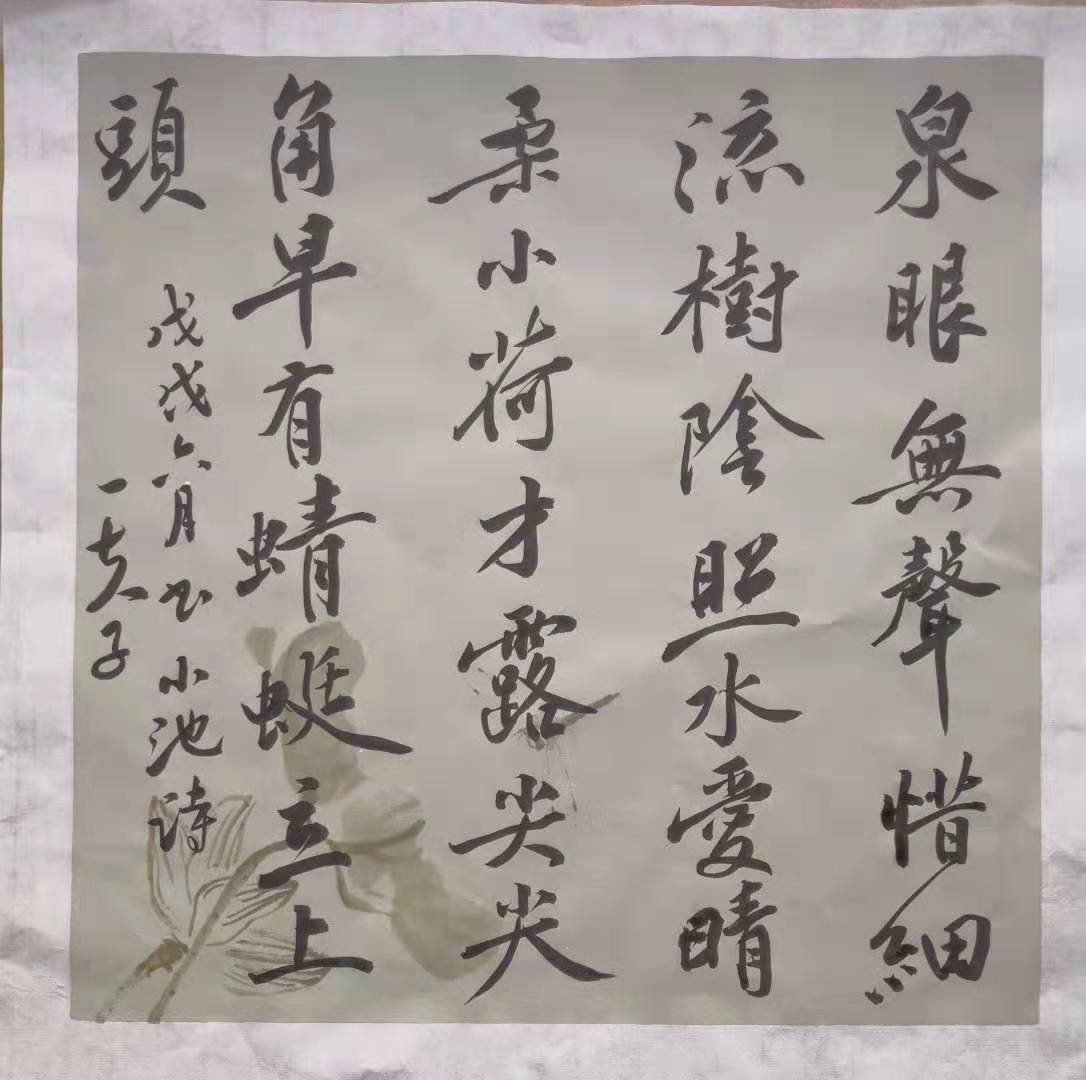 泉眼無聲惜細
流樹陰照水愛晴
柔小荷才露尖尖
角早有蜻蜓立上
頭
戊戌六月书小池诗